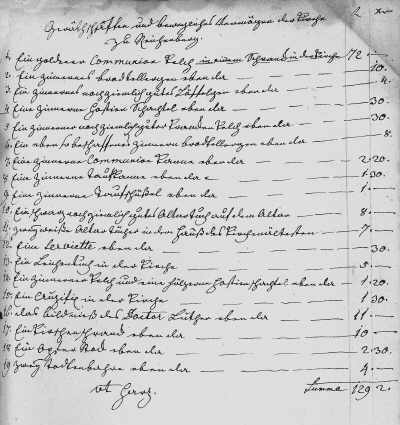 Geräthschaften und bewegliches Vermögen der Kirche
zu Reichenberg.
1. Ein goldener Communion Kelch in einem Schrank in der Kirche — 72 . —
2. Ein zinnernes brodtellergen eben der — 10.
3. Ein zinnernes noch ziemlich gutes eben der — 4.
4. Eine zinnerne Hostien Schachtel eben der — 30.
5. Ein zinnerner noch ziemlich guter Kranken Kelch eben der — 30.
6. Ein eben so beschaffenes zinnern brodtellergen eben der — 8.
7. Eine zinnerne Communion Kanne eben der — 2.20.
8. Eine zinnerne Taufkanne eben der — 1.30
9. Eine zinnerne Taufschüßel eben der — 1 . —
10. Ein schwarz noch ziemlich gutes Altartuch auf dem Altar — 8. —
11. zwey weiße Altar tücher in dem Hauß des Kirchenältesten — 7. —
12. Eine Serviette eben der — 30.
13. Ein Leichentuch in der Kirche — 5 —
14. Ein zinnerner Kelch und eine hülzerne Hostienschachtel eben der — 1.20
15. Ein Crucifix in der Kirche — 1 30.
16. das Bildniß des Doctor Luther eben der — 11 —
17. Ein Kirchenschrank eben der — 10 —
18. Ein eben der — 2.30.
19. zwey Todtenbahre eben der — 4. —
Summa 129 2.